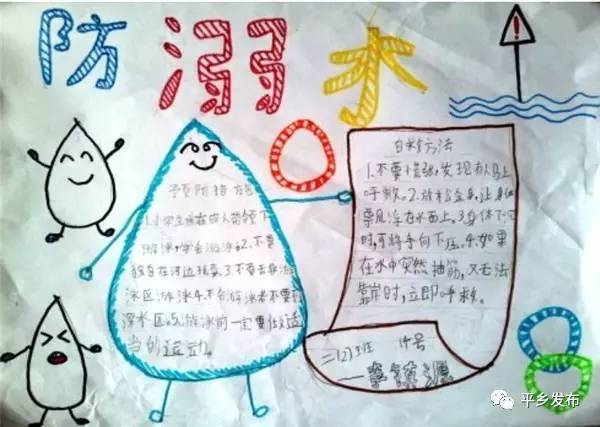 防溺水
预防措施
1.小学生应在成人带领下
游泳,学会游泳。2.不要
独自在河边玩耍。3.不要去非游
泳区游泳4.不会游泳者不要到
深水区。5.游泳前一定要做适
当的运动。
自救方法
1.不要慌张,发现有人马上
呼救。2.放松全身,让身体
漂浮在水面上。3.身体下沉
时,可将手向下压。4.如果
在水中突然抽筋,又无法
靠岸时,立即呼救。
二(2)班
号
李
平乡发布